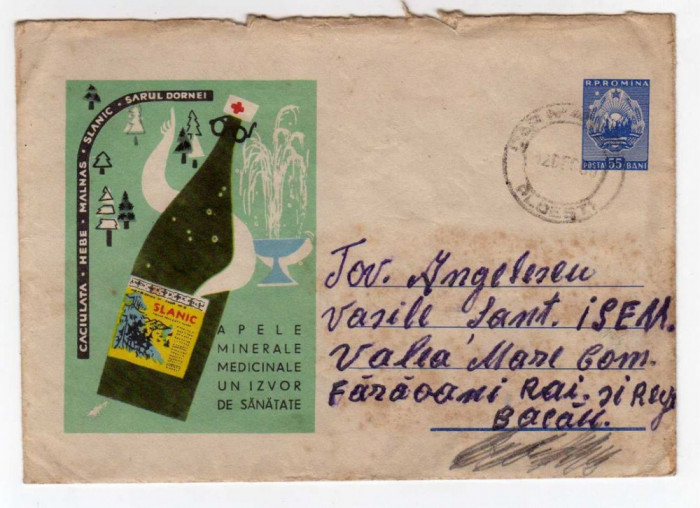 CACIULATA • HEBE • MALNAS • SLANIC • SARUL DORNEI
SLANIC
APELE
MINERALE
MEDICINALE
UN IZVOR
DE SĂNĂTATE
R.P.ROMINA
POSTA 55 BANI
Tov. Angelescu
Vasile Sant. ISEM.
Valea Mare Com.
Fărăoani Rai. și Reg
Bacău.